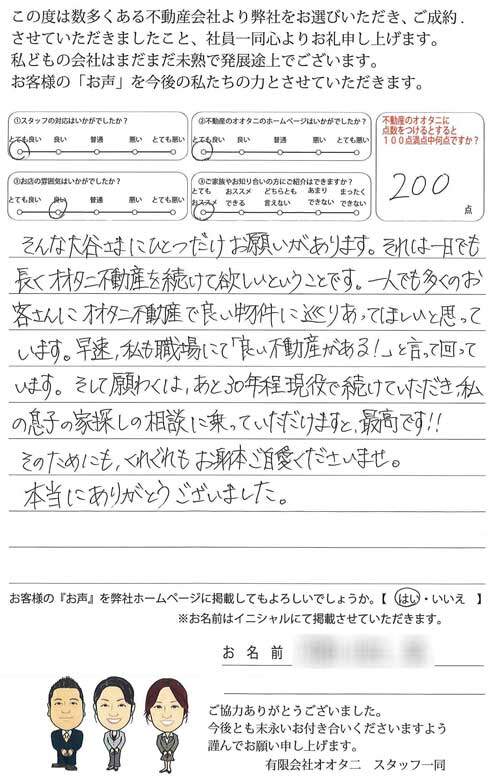 この度は数多くある不動産会社より弊社をお選びいただき、ご成約.
させていただきましたこと、社員一同心よりお礼申し上げます。
私どもの会社はまだまだ未熟で発展途上でございます。
お客様の「お声」を今後の私たちの力とさせていただきます。
①スタッフの対応はいかがでしたか？
とても良い 良い 普通 悪い とても悪い
②不動産のオオタニのホームページはいかがでしたか？
とても良い 良い 普通 悪い とても悪い
③お店の雰囲気はいかがでしたか？
とても良い 良い 普通 悪い とても悪い
⑤ご家族やお知り合いの方にご紹介はできますか？
とても おススメ どちらとも あまり まったく
おススメ できる 言えない できない できない
不動産のオオタニに
点数をつけるとすると
１００点満点中何点ですか？
200
点
そんな大谷さまにひとつだけお願いがあります。それは一日でも
長くオオタニ不動産を続けて欲しいということです。一人でも多くのお
客さんにオオタニ不動産で良い物件に巡りあってほしいと思って
います。早速、私も職場にて「良い不動産がある！」と言って回って
います。そして願わくは、あと30年程現役で続けていただき、私
の息子の家探しの相談に乗っていただけますと、最高です!!
そのためにも、くれぐれもお身体ご自愛くださいませ。
本当にありがとうございました。
お客様の『お声』を弊社ホームページに掲載してもよろしいでしょうか。【 はい・いいえ 】
※お名前はイニシャルにて掲載させていただきます。
お 名 前
ご協力ありがとうございました。
今後とも末永いお付き合いくださいますよう
謹んでお願い申し上げます。
有限会社オオタニ スタッフ一同